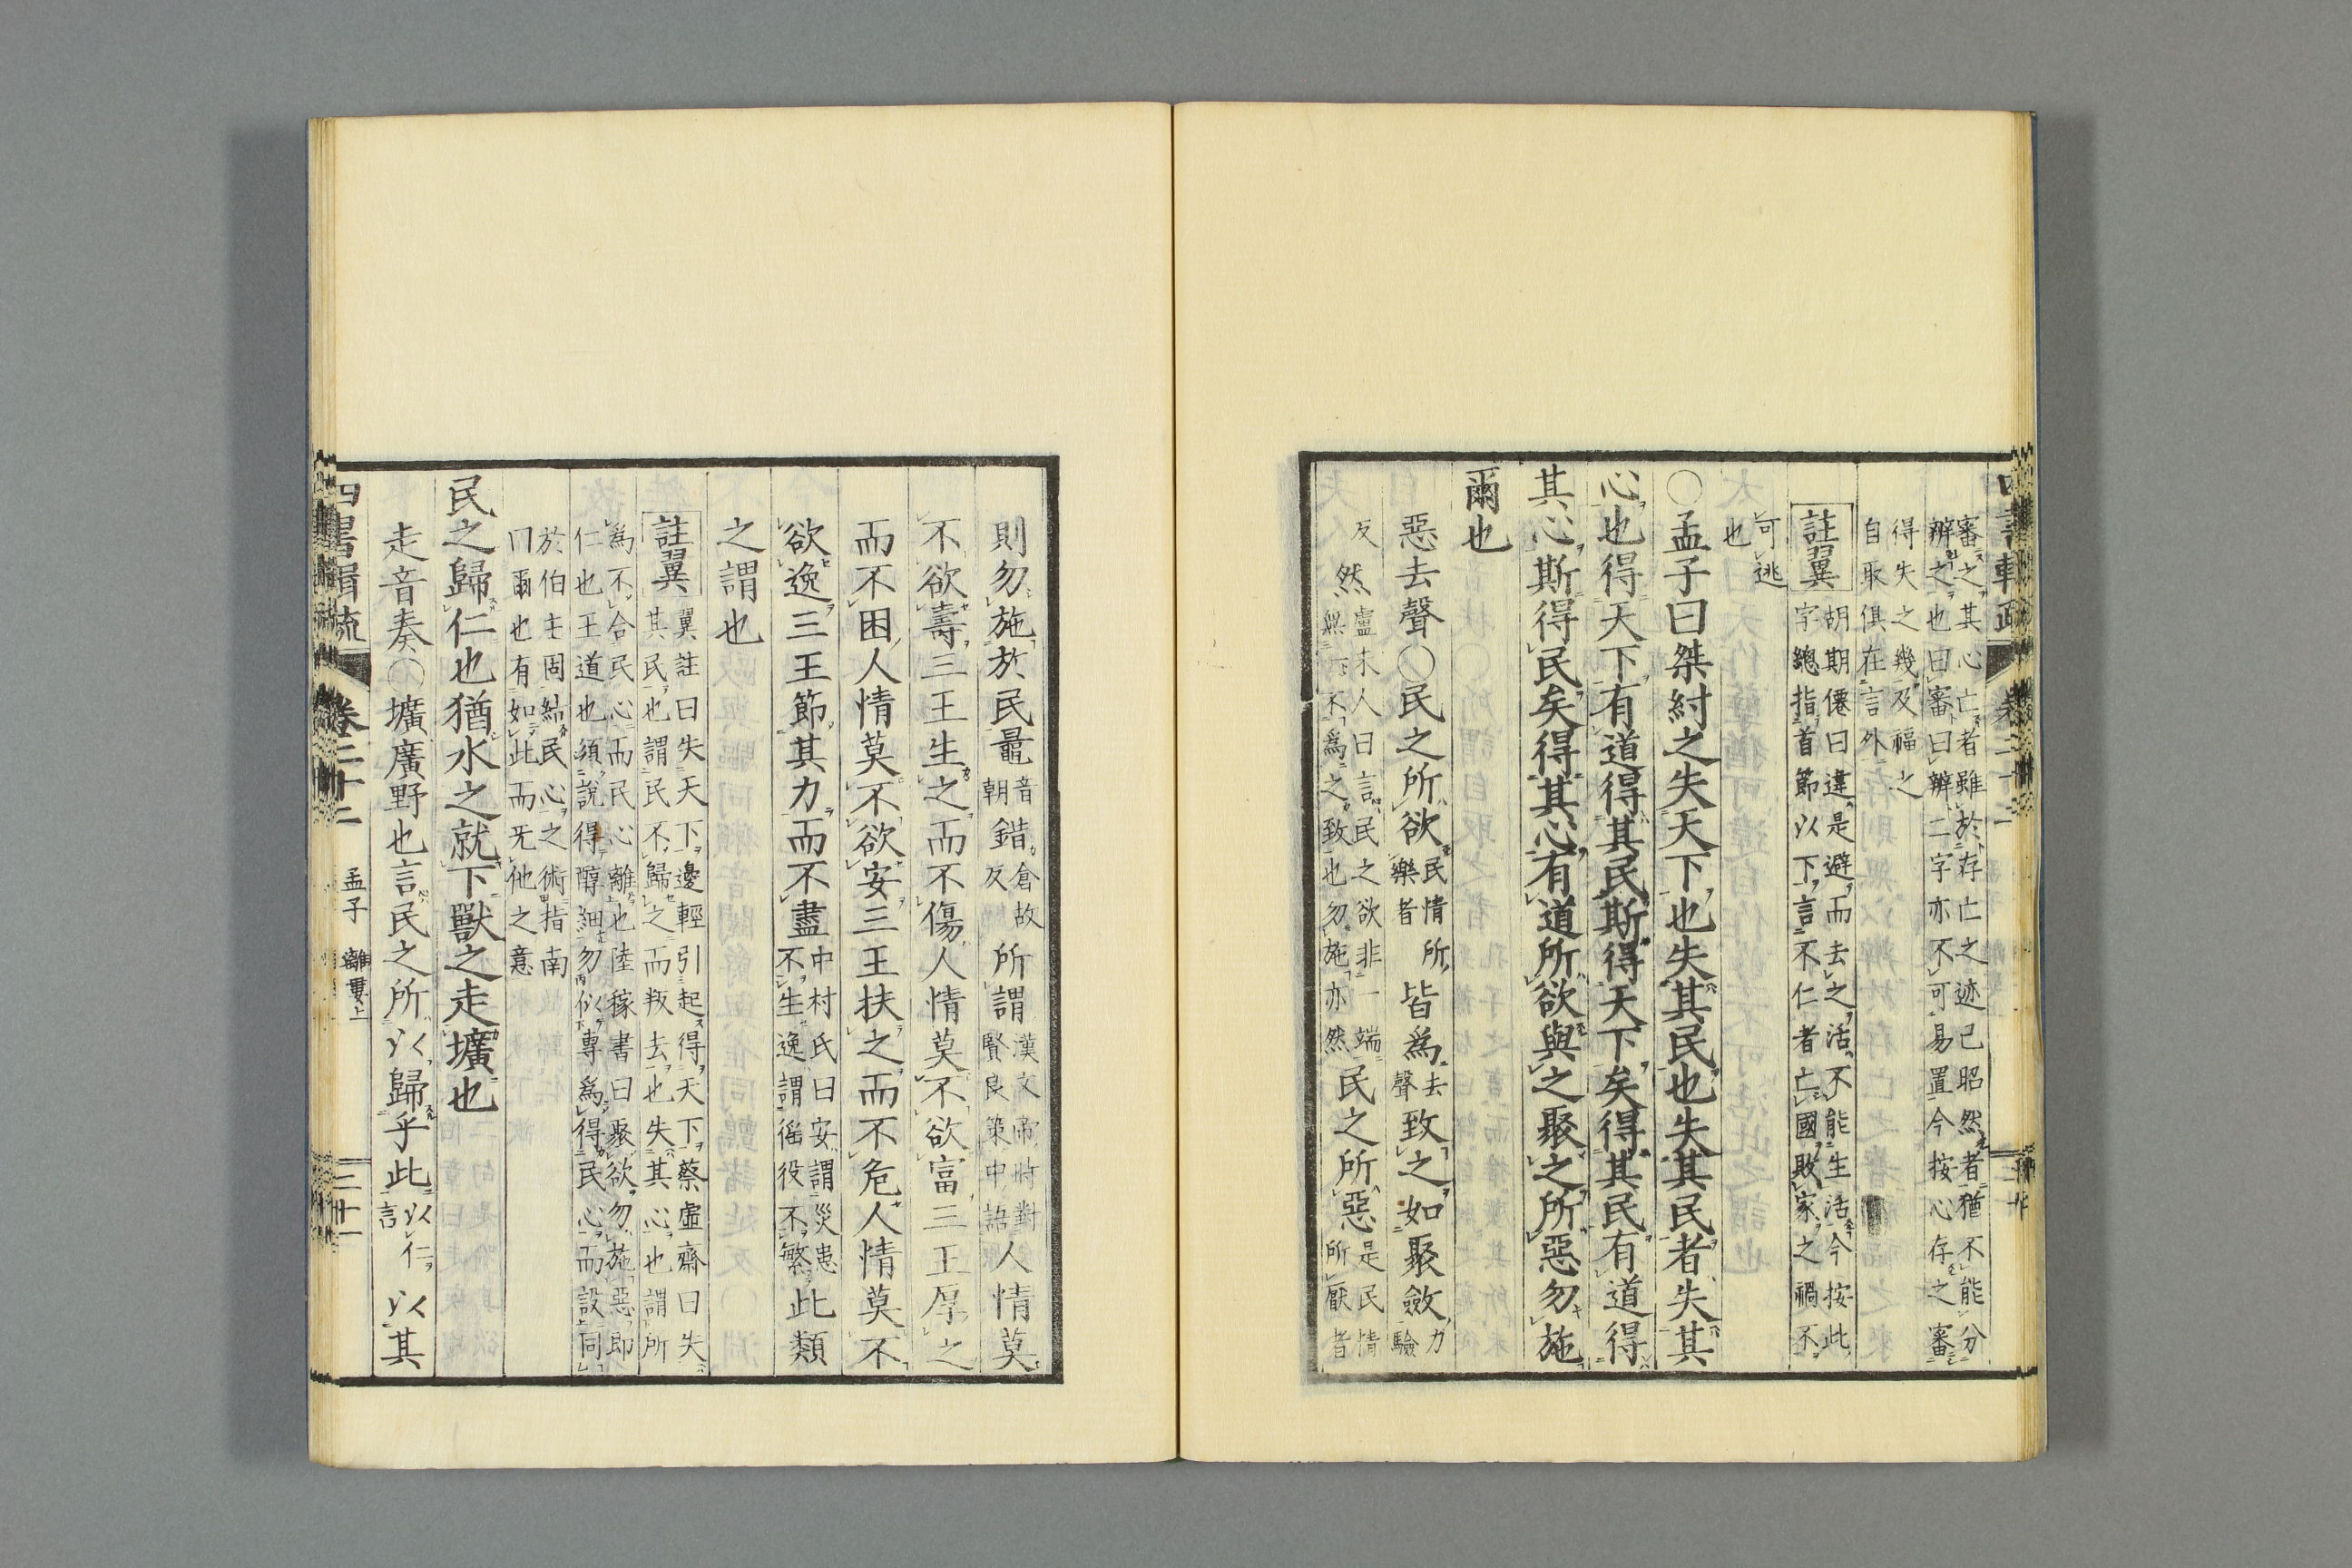 審之其心亡者雖於存亡之迹已昭然者猶不能分
辨之也曰審曰辨二字亦不可易置今按心存之審
得失之幾及福之
自取俱在言外
註翼
胡期僊曰違是避而去之活不能生活今按此
字總指首節以下言不仁者亡國敗家之禍不
可逃
也
〇孟子曰桀紂之失天下也失其民也失其民者失其
心也得天下有道得其民斯得天下矣得其民有道得
其心斯得民矣得其心有道所欲與之聚之所惡勿施
爾也
惡去聲〇民之所欲
民情所
樂者
皆爲
去
聲
致之如聚斂
力
驗
反
然
盧未人曰言民之欲非一端
無不爲之致也勿施亦然
民之所惡
是民情
所厭者
則勿施於民鼂
音
朝
錯
倉故
反
所謂
漢文帝時對
賢良策中語
人情莫
不欲壽三王生之而不傷人情莫不欲富三王厚之
而不困人情莫不欲安三王扶之而不危人情莫不
欲逸三王節其力而不盡
中村氏曰安謂災患
不生逸謂徭役不繁
此類
之謂也
註翼
翼註曰失天下邊輕引起得天下蔡虛齋曰失
其民也謂民不歸之而叛去也失其心也謂所
爲不合民心而民心離也陸稼書曰聚欲勿施惡即
仁也王道也須說得醇細勿似專爲得民心而設同
於伯主固結民心之術指南
曰爾也有如此而无他之意
民之歸仁也猶水之就下獸之走壙也
走音奏〇壙廣野也言民之所以歸乎此
以仁
言
以其
四書輯疏
卷二十二
孟子
離婁上
三十一